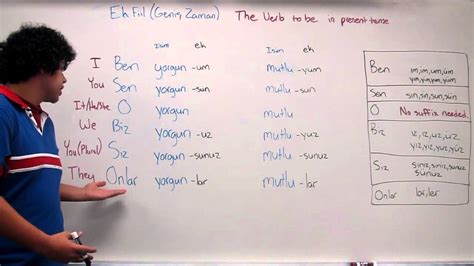 Ek Fiil (Geniş Zaman) The Verb to be in present tense
İsim ek İsim ek
I Ben yorgun -um mutlu -yum
You Sen yorgun -sun mutlu -sun
It/He/She O yorgun mutlu
We Biz yorgun -uz mutlu -yuz
You (Plural) Siz yorgun -sunuz mutlu -sunuz
They Onlar yorgun -lar mutlu -lar
Ben ım, im, um, üm
yım, yim, yum, yüm
Sen sın, sin, sun, sün
O No suffix needed
Biz ız, iz, uz, üz
yız, yiz, yuz, yüz
Siz sınız, siniz, sunuz
sünüz
Onlar lar, ler